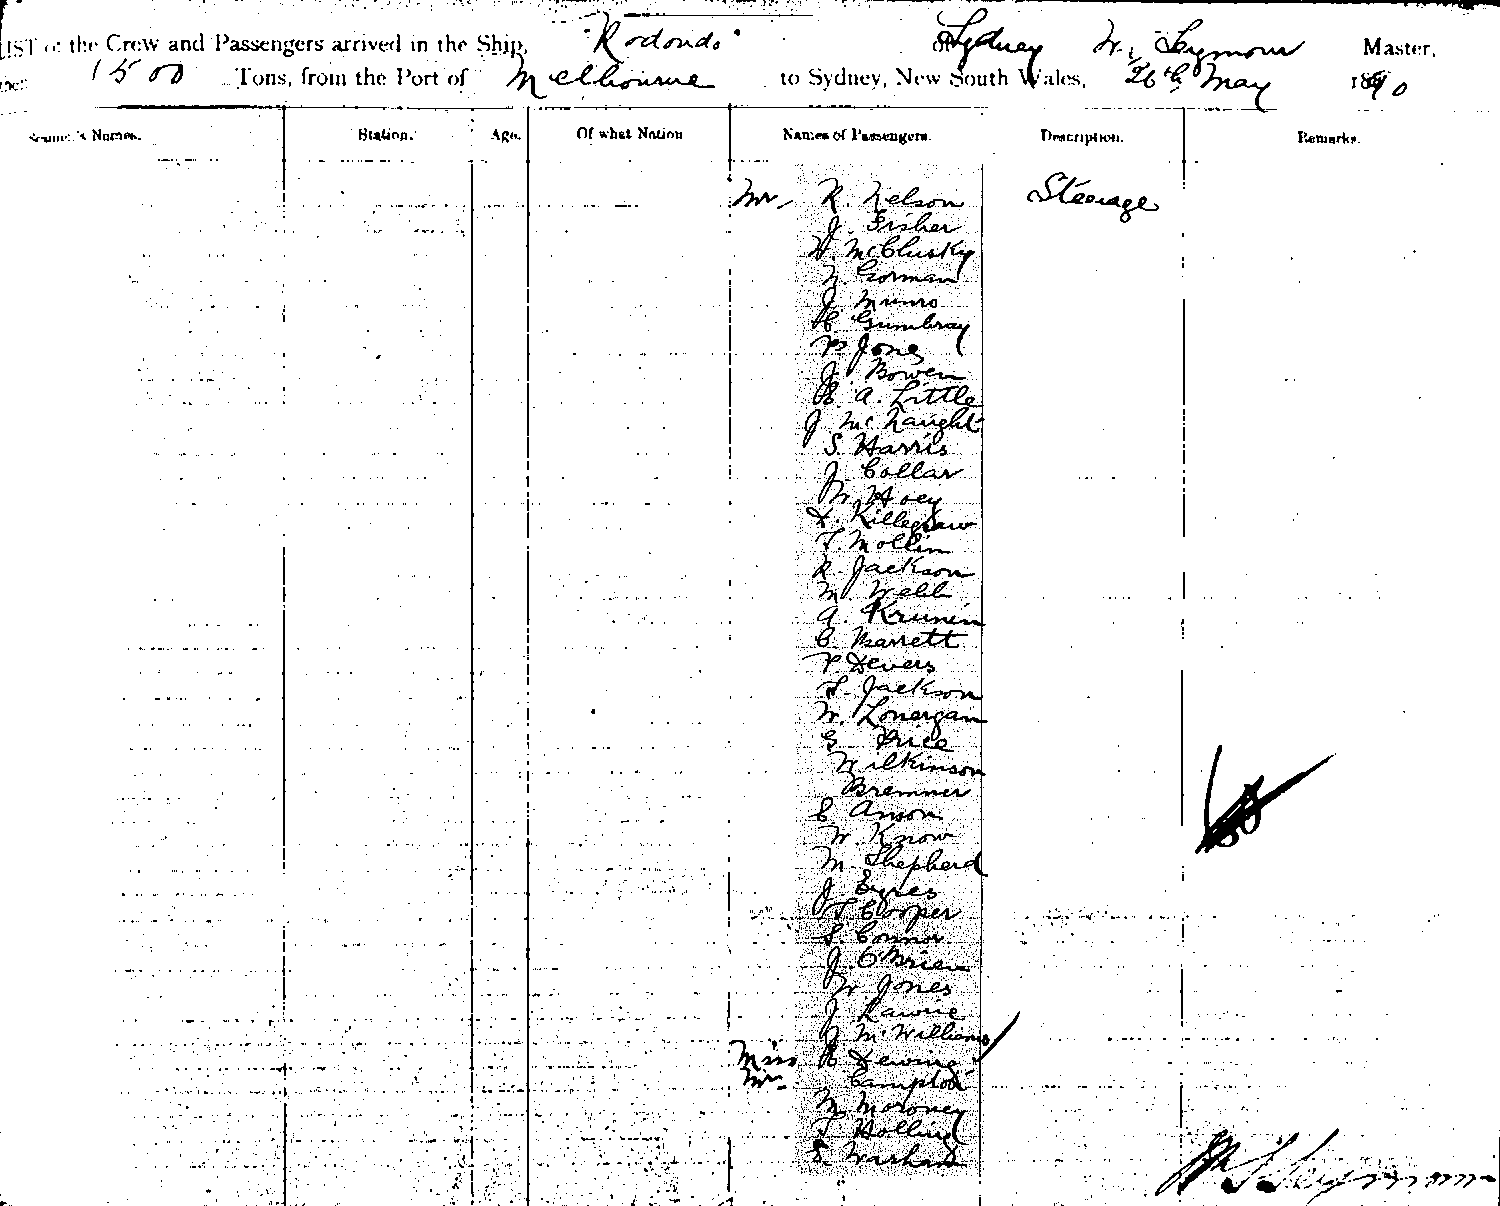 LIST of the Crew and Passengers arrived in the Ship, "Rodondo" of Sydney W. Seymour Master,
1500 Tons, from the Port of Melbourne to Sydney, New South Wales, 26th May 1890
Names. Station. Age. Of what Nation Names of Passengers. Description. Remarks.
Mr. R. Nelson Steerage
J. Fisher
W. McClusky
Gorman
J. Munro
Gumbray
Jones
J. Bowen
E. A. Little
J. McNaught
S. Harris
J. Collar
Hoey
Killegraw
T. Mollim
R. Jackson
M. Webb
A.
C. Barrett
Devers
T. Jackson
W. Lonergan
G. Price
Wilkinson
Bremner
E Anson
W. Know
M. Shepherd
J. Eyres
T Cooper
S. Connor
J. O'Brien
W. Jones
J. Lawrie
J McWilliams
Miss
Mr. Compton
M. Moroney
T.
E.
W Seymour